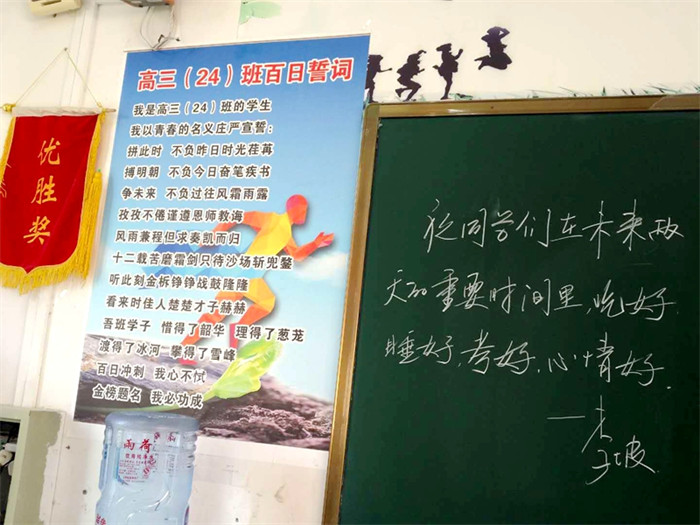 优胜奖
高三（24）班百日誓词
我是高三（24）班的学生
我以青春的名义庄严宣誓：
拼此时 不负昨日时光荏苒
搏明朝 不负今日奋笔疾书
争未来 不负过往风霜雨露
孜孜不倦谨遵恩师教诲
风雨兼程但求奏凯而归
十二载苦磨霜剑只待沙场斩兜鍪
听此刻金柝铮铮战鼓隆隆
看来时佳人楚楚才子赫赫
吾班学子 惜得了韶华 理得了葱茏
渡得了冰河 攀得了雪峰
百日冲刺 我心不忒
金榜题名 我必功成
雨荷
祝同学们在未来两
天的重要时间里，吃好
睡好，考好，心情好